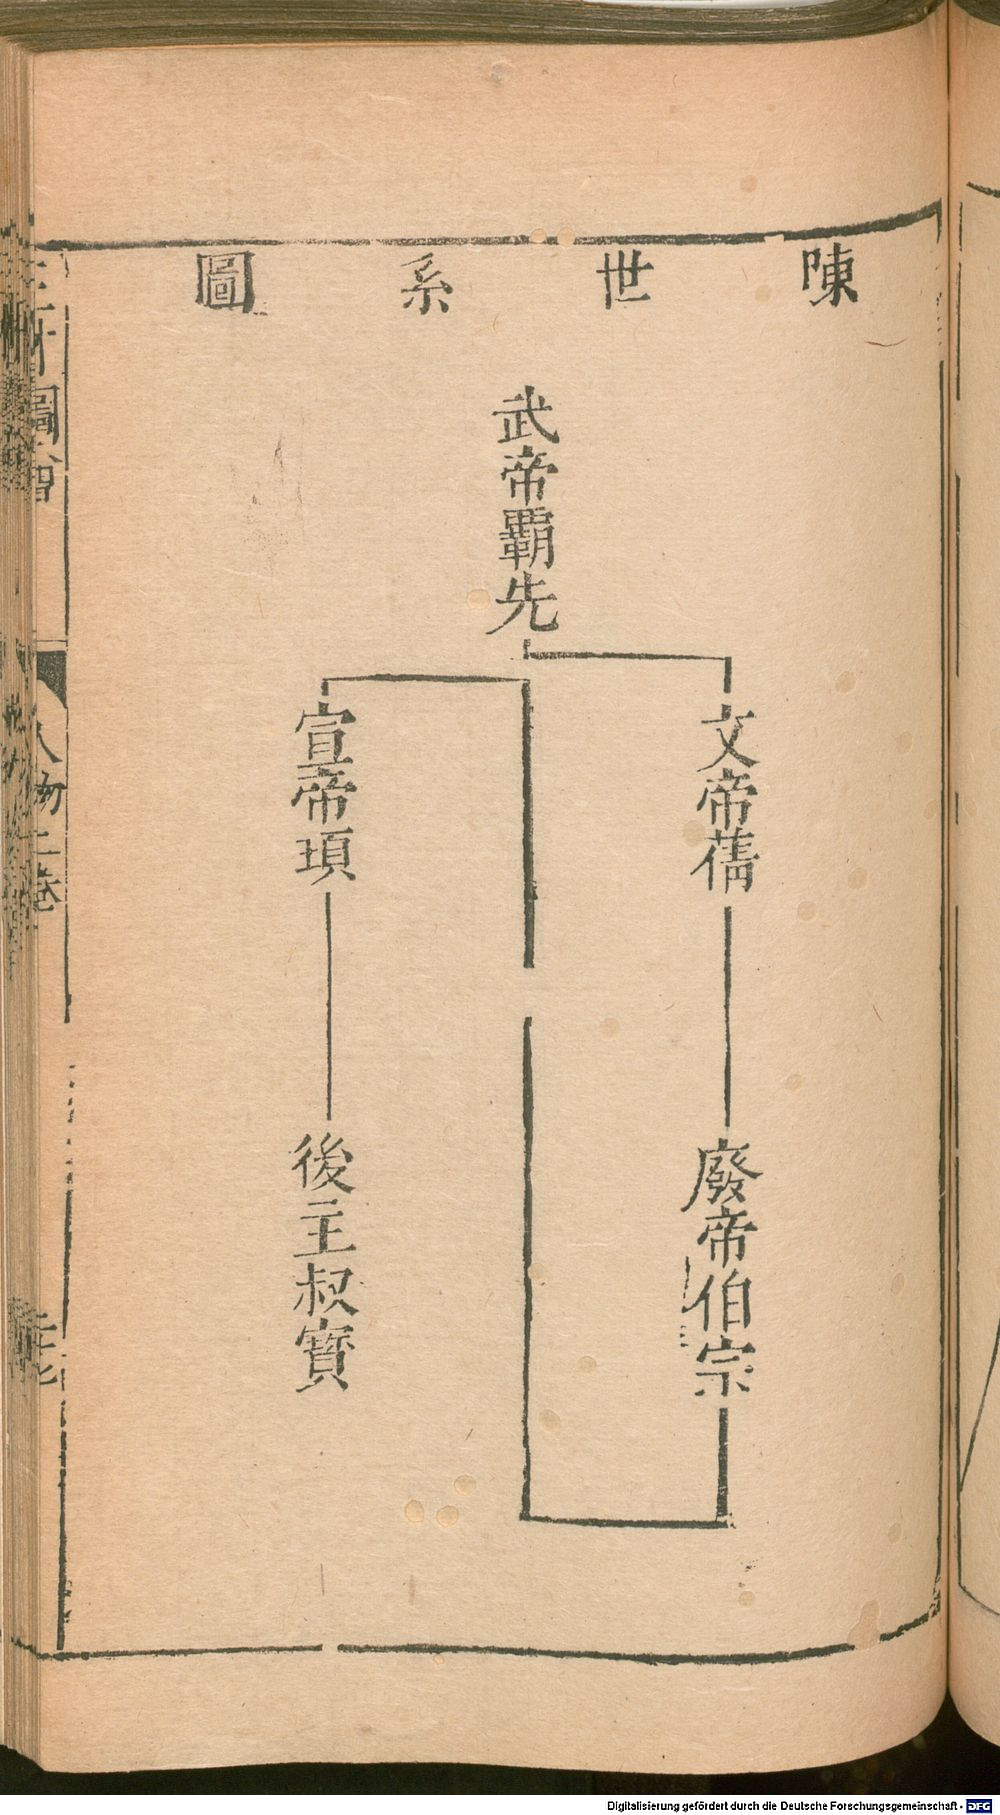 陳世系圖
武帝霸先
文帝蒨
廢帝伯宗
宣帝頊
後主叔寶
三才圖會
人物三卷
Digitalisierung gefördert durch die Deutsche Forschungsgemeinschaft - DFG